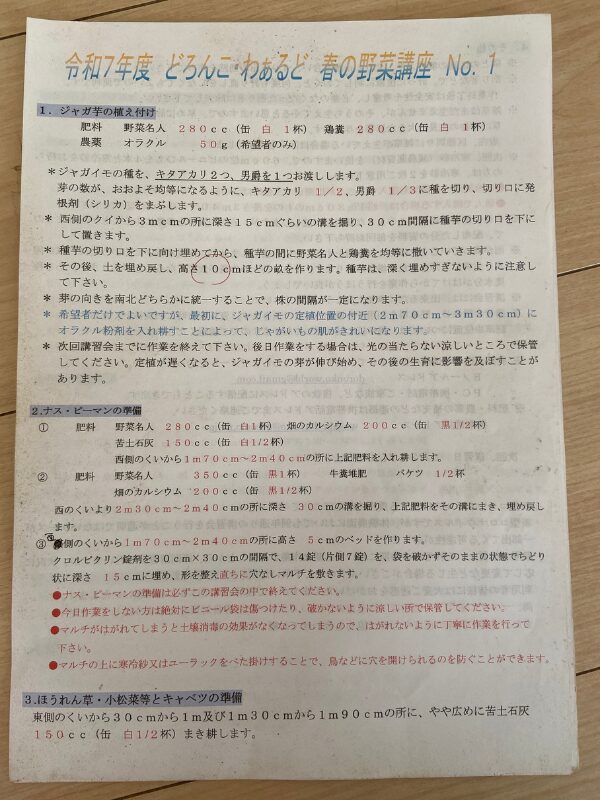 令和7年度 どろんこ・わぁるど 春の野菜講座 No. 1
1. ジャガ芋の植え付け
肥料 野菜名人 280cc(缶 白 1杯) 鶏糞 280cc(缶 白 1杯)
農薬 オラクル 50g(希望者のみ)
*ジャガイモの種を、キタアカリ2つ、男爵を1つお渡しします。
芽の数が、おおよそ均等になるように、キタアカリ 1/2、男爵 1/3に種を切り、切り口に発
根剤(シリカ)をまぶします。
* 西側のクイから3mcmの所に深さ15cmぐらいの溝を掘り、30cm間隔に種芋の切り口を下に
して置きます。
* 種芋の切り口を下に向け埋めてから、種芋の間に野菜名人と鶏糞を均等に撒いていきます。
* その後、土を埋め戻し、高さ10cmほどの畝を作ります。種芋は、深く埋めすぎないように注意し
て下さい。
* 芽の向きを南北どちらかに統一することで、株の間隔が一定になります。
* 希望者だけでよいですが、最初に、ジャガイモの定植位置の付近(2m70cm~3m30cm)に
オラクル粉剤を入れ耕すことによって、じゃがいもの肌がきれいになります。
* 次回講習会までに作業を終えて下さい。後日作業をする場合は、光の当たらない涼しいところで保管
してください。定植が遅くなると、ジャガイモの芽が伸び始め、その後の生育に影響を及ぼすことが
あります。
2.ナス・ピーマンの準備
① 肥料 野菜名人 280cc(缶 白1杯) 畑のカルシウム 200cc(缶 黒1/2杯)
苦土石灰 150cc(缶 白1/2杯)
西側のくいから1m70cm~2m40cmの所に上記肥料を入れ耕します。
② 肥料 野菜名人 350cc(缶 黒1杯) 牛糞堆肥 バケツ 1/2杯
畑のカルシウム 200cc(缶 黒1/2杯)
西のくいより2m30cm~2m40cmの所に深さ 30cmの溝を掘り、上記肥料をその溝にまき、埋め戻し
ます。
③ 側のくいから1m70cm~2m40cmの所に高さ 5cmのベッドを作ります。
クロルピクリン錠剤を30cm×30cmの間隔で、14錠(片側7錠)を、袋を破かずそのままの状態でちどり
状に深さ 15cmに埋め、形を整え直ちに穴なしマルチを敷きます。
●ナス・ピーマンの準備は必ずこの講習会の中で終えてください。
●今日作業をしない方は絶対にビニール袋は傷つけたり、破かないように涼しい所で保管してください。
●マルチがはがれてしまうと土壌消毒の効果がなくなってしまうので、はがれないように丁寧に作業を行って
下さい。
●マルチの上に寒冷紗又はユーラックをべた掛けすることで、鳥などに穴を開けられるのを防ぐことができます。
3.ほうれん草・小松菜等とキャベツの準備
東側のくいから30cmから1m及び1m30cmから1m90cmの所に、やや広めに苦土石灰
150cc(缶 白1/2杯)まき耕します。